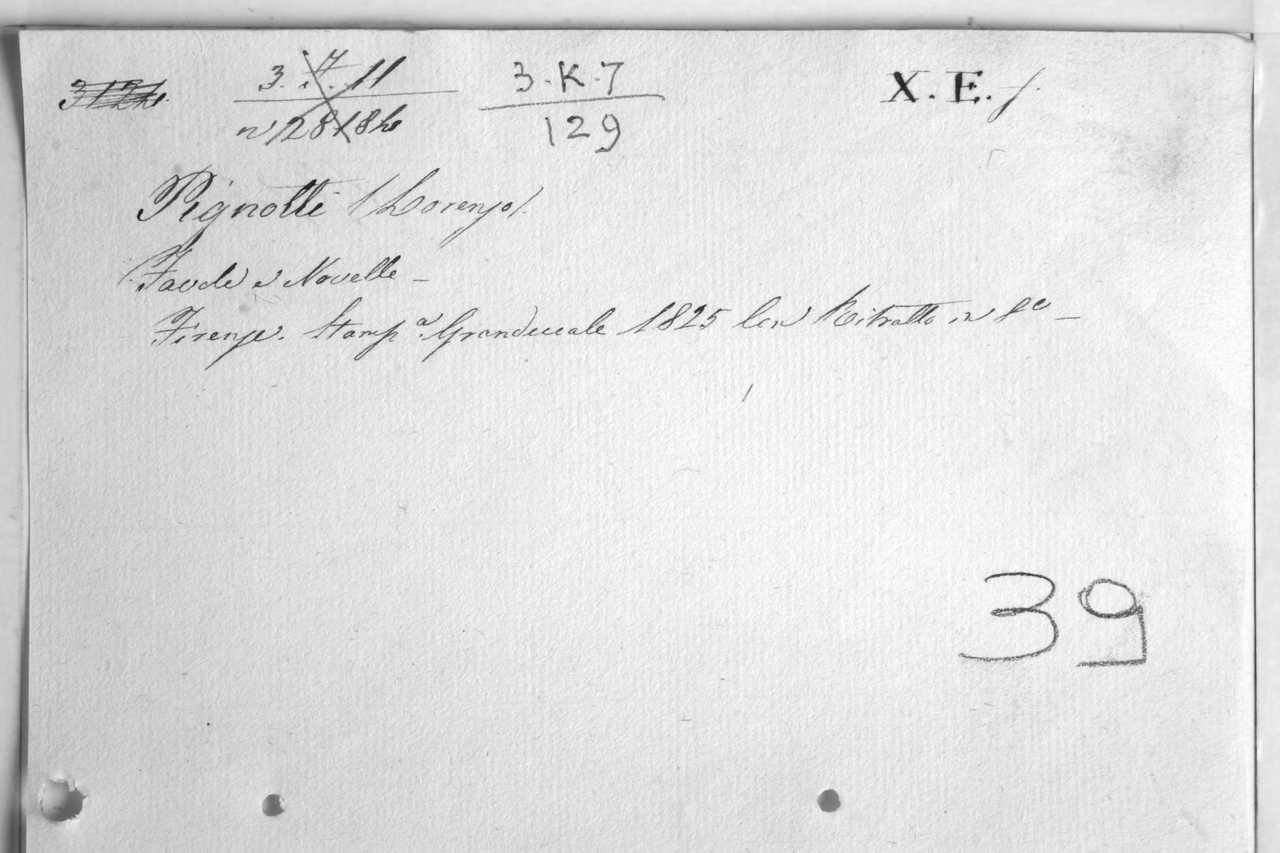 3.K.7 X.E.f.
129
Pignotti /Lorenzo/.
Favole e Novelle –
Firenze. Stamp.ª Granducale 1825 Con Ritratto in 8º –
39